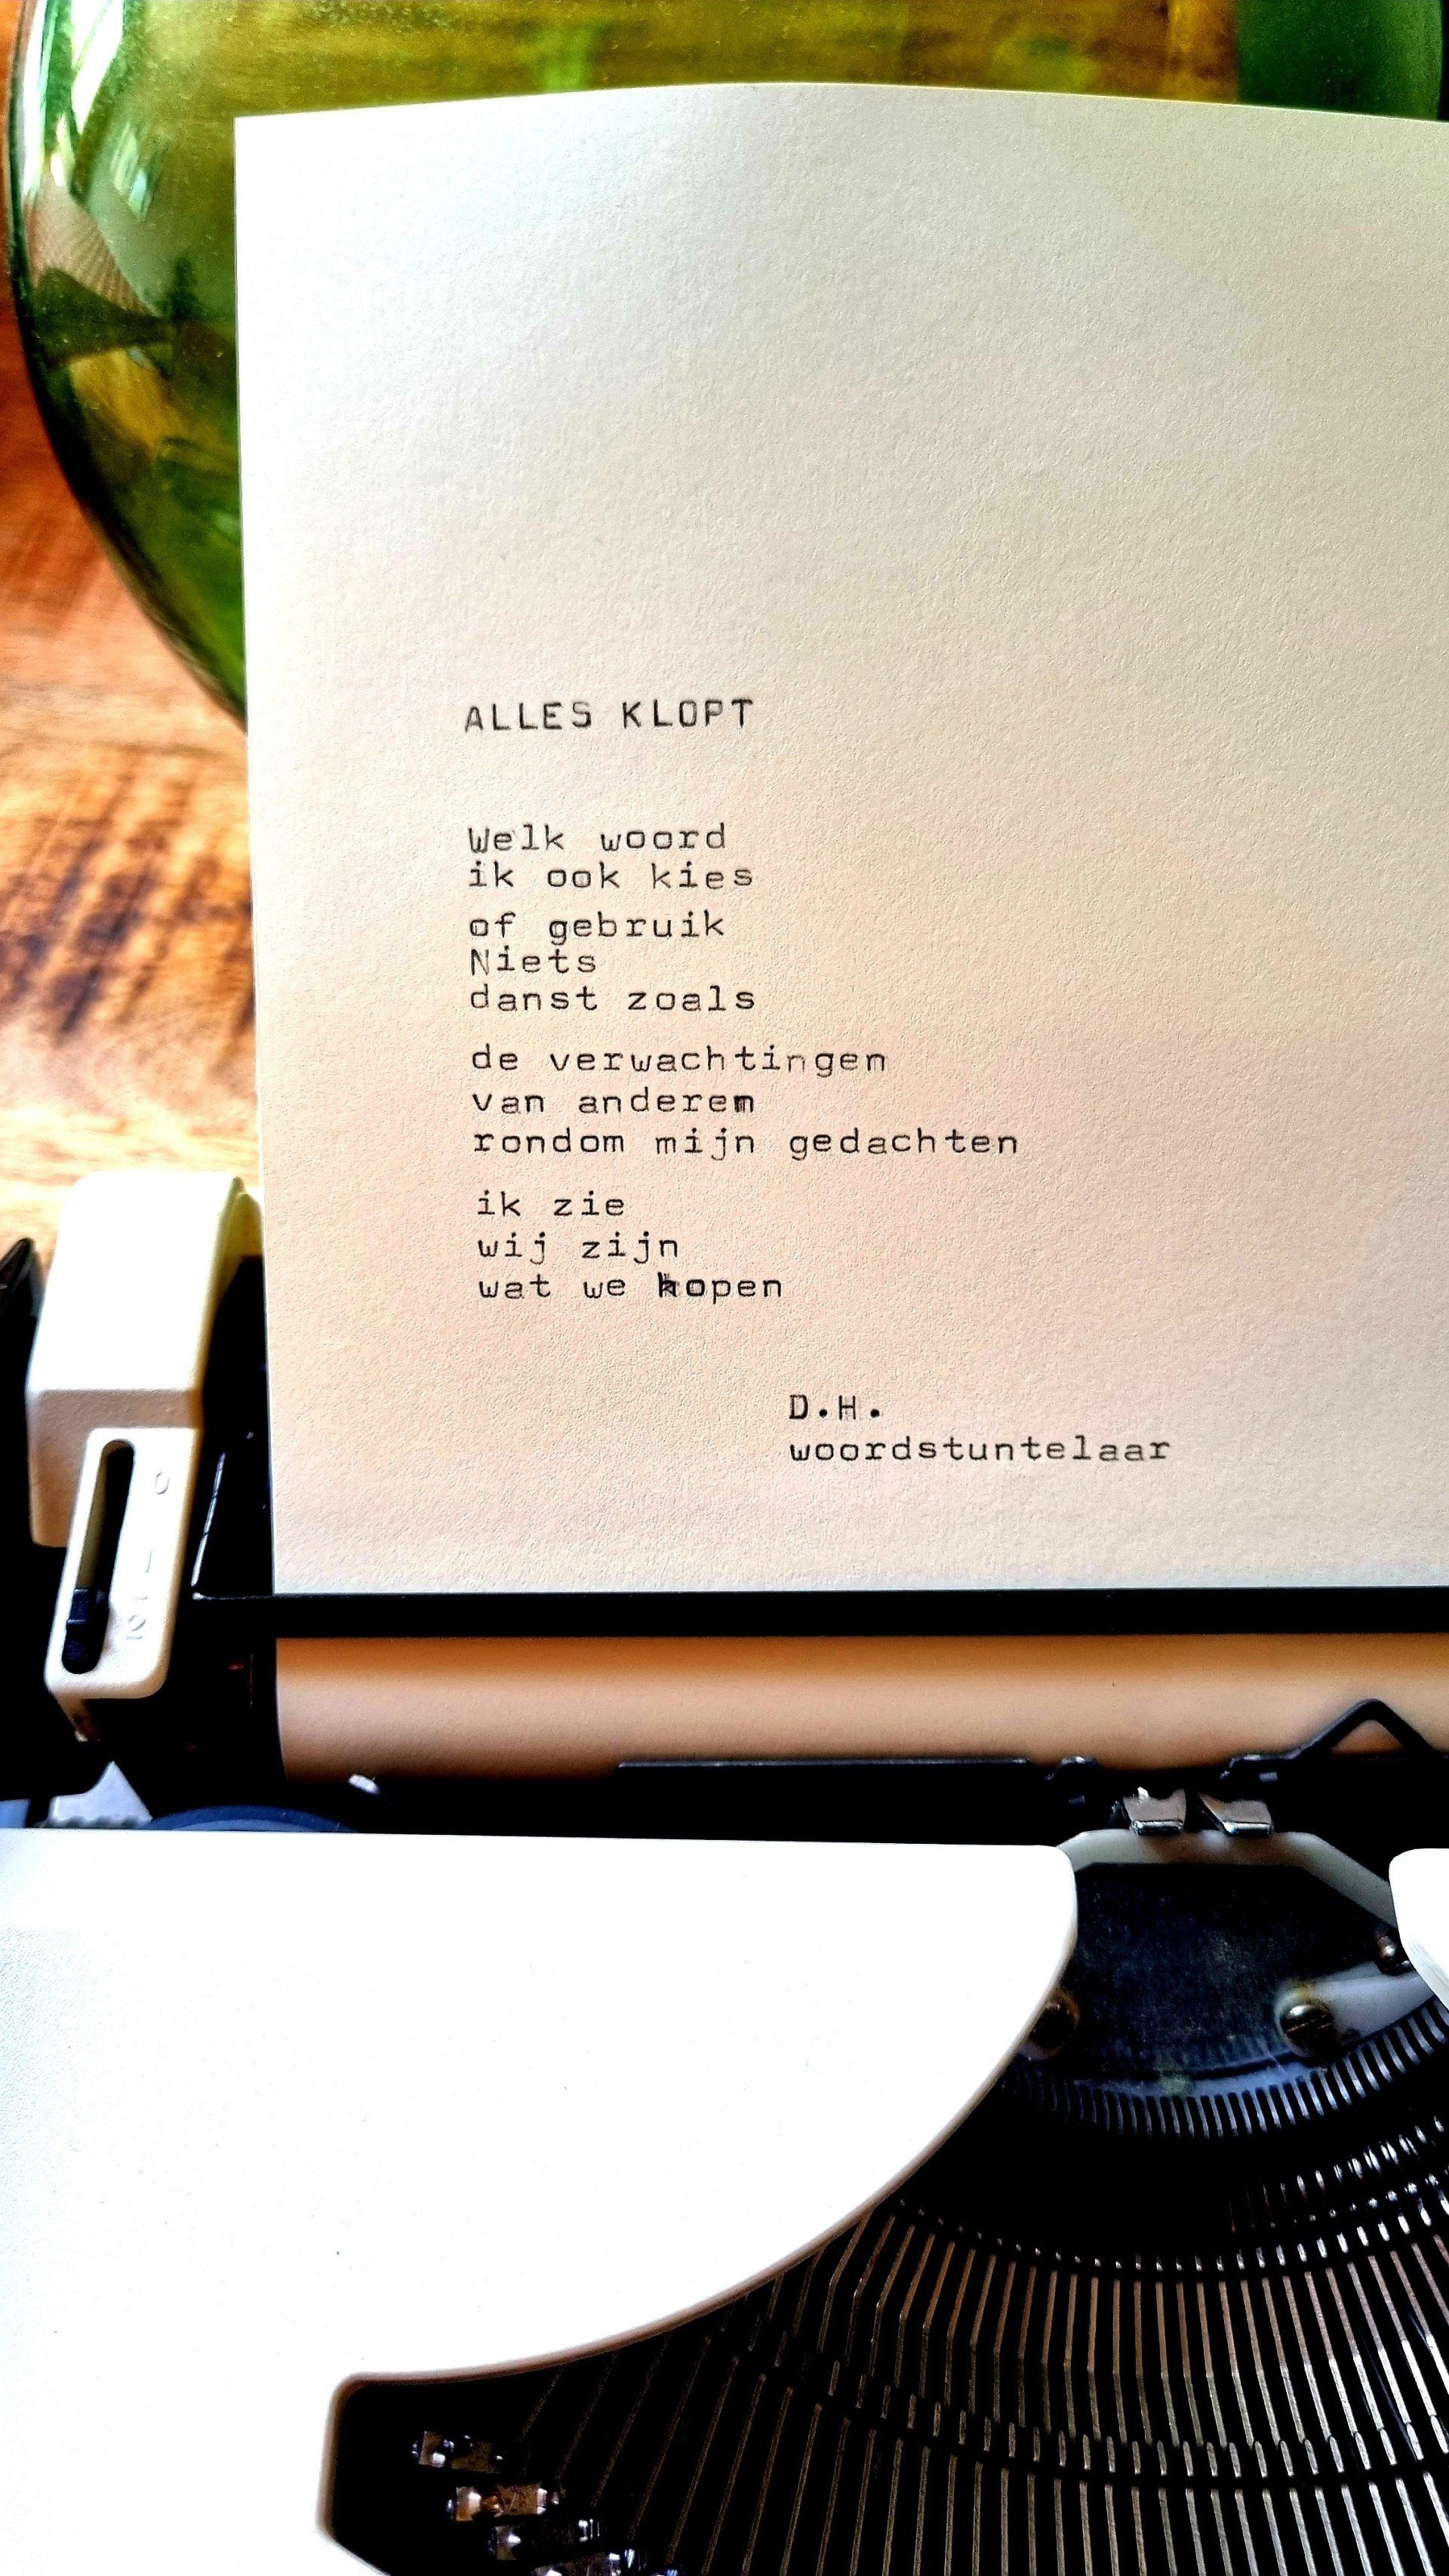 ALLES KLOPT
Welk woord
ik ook kies
of gebruik
Niets
danst zoals
de verwachtingen
van anderen
rondom mijn gedachten
ik zie
wij zijn
wat we hopen
D.H.
woordstuntelaar
0
1
2